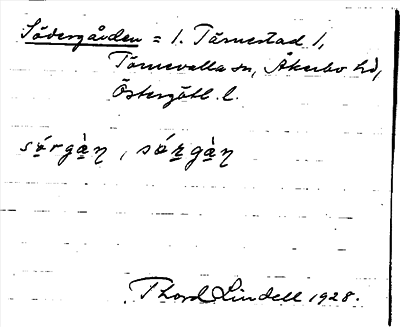 Södergården = 1. Tärnestad 1,
Törnevalla sn, Åkerbo hd,
Östergötl. l.
sórgàn, sórgàn
Thord Lindell 1928.